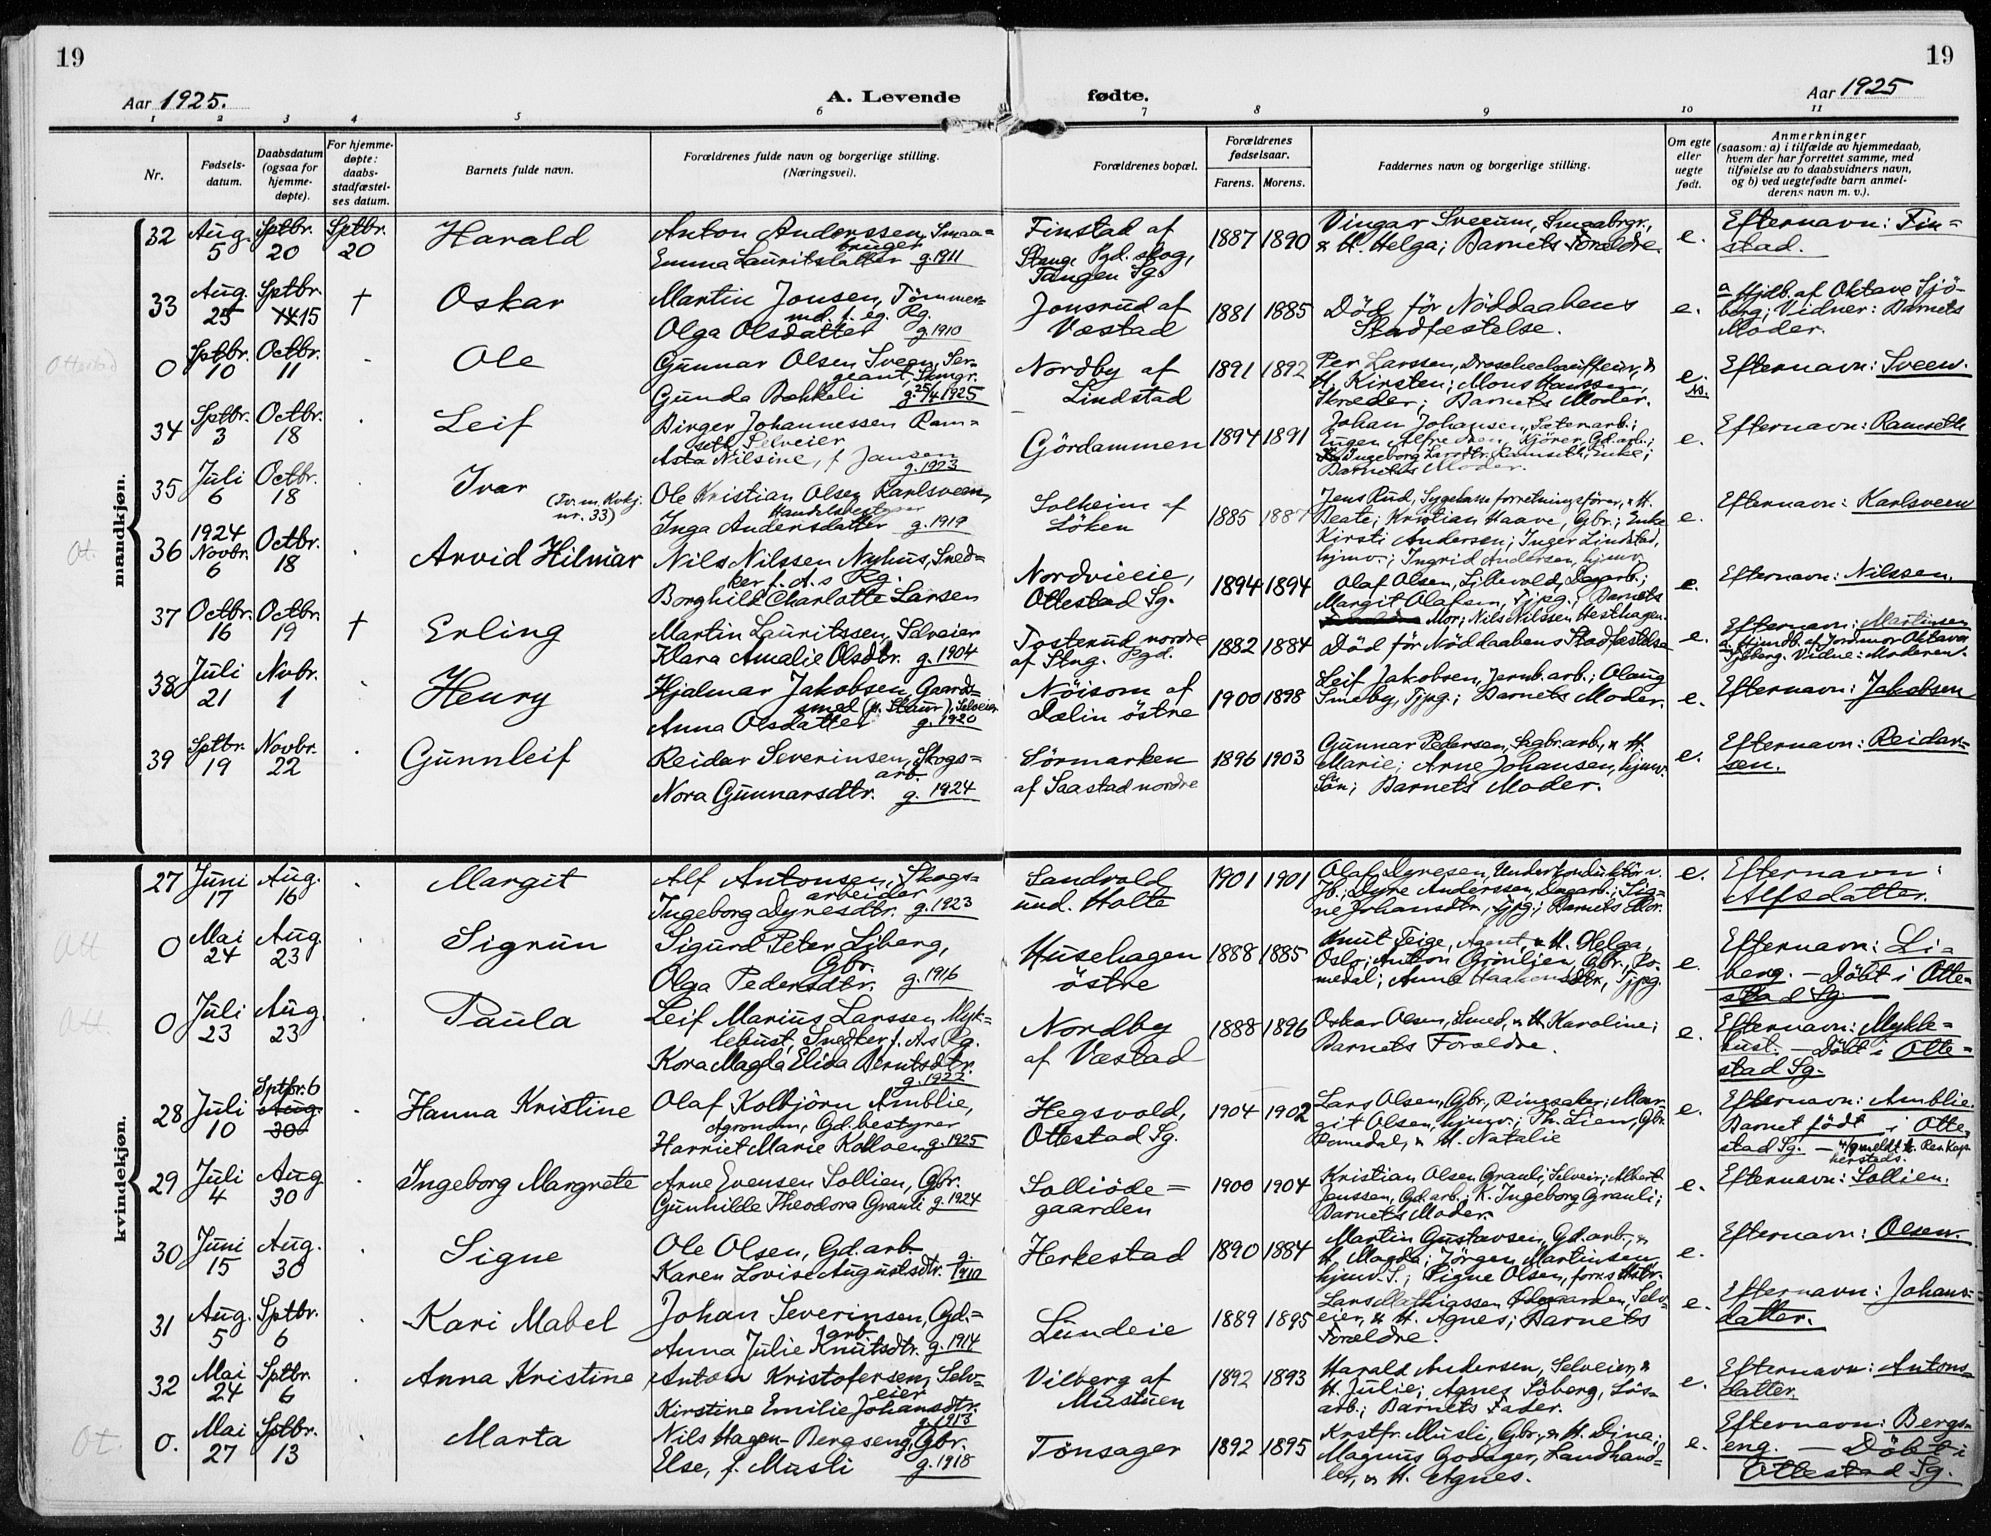 19
19
Aar 1925.
A. Levende
fødte.
Aar 1925
1 2 3 4 5 6 7 8 9 10 11
Nr.
Fødsels-
datum.
Daabsdatum
(ogsaa for
hjemme-
døpte).
For hjemme-
døpte:
daabs-
stadfæstel-
ses datum.
Barnets fulde navn.
Forældrenes fulde navn og borgerlige stilling.
(Næringsvei).
Forældrenes bopæl.
Forældrenes
fødselsaar.
Farens. Morens.
Faddernes navn og borgerlige stilling.
Om egte
eller
uegte
født.
Anmerkninger
(saasom: a) i tilfælde av hjemmedaab,
hvem der har forrettet samme, med
tilføielse av to daabsvidners navn,
og b) ved uegtefødte barn anmel-
derens navn m. v.).
mandkjøn.
32 Aug. 5 Sptbr. 20 Sptbr. 20
Harald
Anton Anderssen, Smaa=
bruger
Emma Lauritsdatter g. 1911
Finstad af
Stange Pgd. skog,
Tangen Sg.
1887 1890
Vingar Sveum, Smaabrgr.,
& H. Helga; Barnets Forældre
e.
Efternavn: Fin=
stad.
33 Aug. 25 Sptbr. 15 †
Oskar
Martin Jonsen, Tömmer=
md. f. eg. Rg.
Olga Olsdatter g. 1910
Jonsrud af
Væstad
1881 1885
Död för Nöddaabens
Stadfæstelse.
e.
a Hjdb. af Oktave Sjö=
berg; Vidner: Barnets
Moder.
Ottestad
0 Sptbr. 10 Octbr. 11
Ole
Gunnar Olsen Sveen, Ser=
geant, Skmgr.
Gunda Bækkeli g. 25/4 1925
Nordby af
Lindstad
1891 1892
Per Larssen, Droschechauffeur, &
H. Kirsten; Mons Hanssen,
Skræder; Barnets Moder.
e.
Ns.
Efternavn: Sveen.
34 Sptbr. 3 Octbr. 18
Leif
Birger Johannessen Ram=
seth Selveier
Asta Nilsine, f. Jansen
g. 1923
Gördammen
1894 1891
Johan Johansen, Sæterarb.;
Eugen Alfredsen, Kjörer, Gd. arb.;
Ingeborg Larsdtr. Ramseth, Enke;
Barnets Moder.
e.
Efternavn: Ramseth
35 Juli 6 Octbr. 18
Ivar
(Tv. m. Kvkj.
nr. 33)
Ole Kristian Olsen Karlsveen,
Handelsbestyrer
Inga Andersdatter g. 1919
Solheim af
Löken
1885 1887
Jens Rud, Sygekasseforretningsförer, & H.
Beate; Kristian Haave, Gbr.; Enke
Kirsti Andersen; Inger Lindstad,
hjmv.; Ingrid Andersen, hjmv.
e.
Efternavn: Karlsveen
Ot.
36 1924 Novbr. 6 Octbr. 18
Arvid Hilmar
Nils Nilssen Nyhus, Sned=
ker f. A.s Rg.
Borghild Charlotte Larsen
Nordvieie,
Ottestad Sg.
1894 1894
Olaf Olsen, Lillevold, Dagarb.;
Margit Olafsen, Tjpg.; Barnets
Mor; Nils Nilssen Hesthagen.
e.
Efternavn: Nilssen.
37 Octbr. 16 Octbr. 19 †
Erling
Martin Lauritssen, Selveier
Klara Amalie Olsdtr. g. 1904
Tosterud nordre
af Stng. Pgd.
1882 1884
Död för Nöddaabens Stadfæstelse
e.
Efternavn: Martinsen
a. Hjmdb. af Jordmor Oktave
Sjöberg. Vidne: Moderen.
38 Juli 21 Nvbr. 1
Henry
Hjalmar Jakobsen, Gaards=
smed (p. Staur), Selveier
Anna Olsdatter g. 1920
Nöisom af
Dælin östre
1900 1898
Leif Jakobsen, Jernb. arb.; Olaug
Smeby, Tjpg.; Barnets Moder.
e.
Efternavn: Jakobsen
39 Sptbr. 19 Novbr. 22
Gunnleif
Reidar Severinsen, Skogs=
arb.
Nora Gunnarsdtr. g. 1924
Sörmarken
af Saastad nordre
1896 1903
Gunnar Pedersen, Sagbr. arb., & H.
Marie; Arne Johansen, hjmv.
Sön; Barnets Moder.
e.
Efternavn: Reidar=
sen.
kvindekjøn.
27 Juni 17 Aug. 16
Margit
Alf Antonsen, Skogs=
arbeider
Ingeborg Dyresdtr. g. 1923
Sandvold
und. Holte
1901 1901
Olaf Dyresen, Underkonduktör v.
Jb.; Dyre Anderssen, Dagarb.; Sig=
ne Johansdtr., Tjpg.; Barnets Mor.
e.
Efternavn:
Alfsdatter.
Ott
0 Mai 24 Aug. 23
Sigrun
Sigurd Peter Liberg,
Gbr.
Olga Pedersdtr. g. 1916
Husehagen
östre
1888 1885
Knut Teige, Agent, & H. Helga,
Oslo; Anton Grönlien, Gbr., Ro=
medal; Anne Haakonsdtr., Tjpg.
e.
Efternavn: Li=
berg. – Döbt i Otte=
stad Sg.
Ott.
0 Juli 23 Aug. 23
Paula
Leif Marius Larssen Myk=
lebust, Snedker f. As Rg.
Kora Magda Elida Berntsdtr.
g. 1922
Nordby
af Væstad
1888 1896
Oskar Olsen, Smed, & H. Karoline;
Barnets Forældre.
e.
Efternavn: Mykle=
bust. – Döbt i Otte=
stad Sg.
28 Juli 10 Sptbr. 6 Aug. 30
Hanna Kristine
Olaf Kolbjörn Amblie,
Agronom, Gd. bestyrer
Harriet Marie Kolloen g. 1925
Hegsvold,
Ottestad Sg.
1904 1902
Lars Olsen, Gbr., Ringsaker; Mar=
git Olsen, hjmv.; Th. Lien, Gbr.
Romedal, & H. Natalie
e.
Efternavn: Amblie.
Barnet födt i Otte
stad Sg. –
29 Juli 4 Aug 30
Ingeborg Margrete
Arne Evensen Sollien, Gbr.
Gunhilde Theodora Granli g. 1924
Solliöde=
gaarden
1900 1904
Kristian Olsen Granli, Selveier; Albert
Jenssen, Gd. arb.; K. Ingeborg Granli;
Barnets Moder.
e.
Efternavn: Sollien.
30 Juni 15 Aug. 30
Signe
Ole Olsen, Gd. arb.
Karen Lovise Augustsdtr. g. 1910
Herkestad
1890 1884
Martin Gustavsen, Gd. arb., &
H. Magda; Jörgen Martinsen
hjmv. S.; Signe Olsen,
e.
Efternavn: Olsen.
31 Aug. 5 Sptbr. 6
Kari Mabel
Johan Severinsen, Gd=
arb.
Anna Julie Knutsdtr. g. 1914
Lundeie
1889 1895
Lars Mathiassen Ødegaarden, Selv=
eier, & H. Agnes; Barnets
Forældre.
e.
Efternavn: Johans=
datter.
32 Mai 24 Sptbr. 6
Anna Kristine
Anton Kristofersen, Selv=
eier
Kirstine Emilie Johansdtr.
g. 1913
Vilberg af
Mustuen
1892 1893
Harald Andersen, Selveier, &
H. Julie; Agnes Söberg, Lös=
arb.; Barnets Fader.
e.
Efternavn: Antons=
datter.
Ot.
0. Mai 27 Sptbr. 13
Marta
Nils Hagen – Bergseng, Gbr.
Else, f. Musli g. 1918
Tönsager
1892 1895
Krstfr. Musli, Gbr., & H. Dina;
Magnus Godager, Landhand=
ler, & H. Agnes.
e.
Efternavn: Bergs=
eng. – Döbt i
Ottestad Sg.